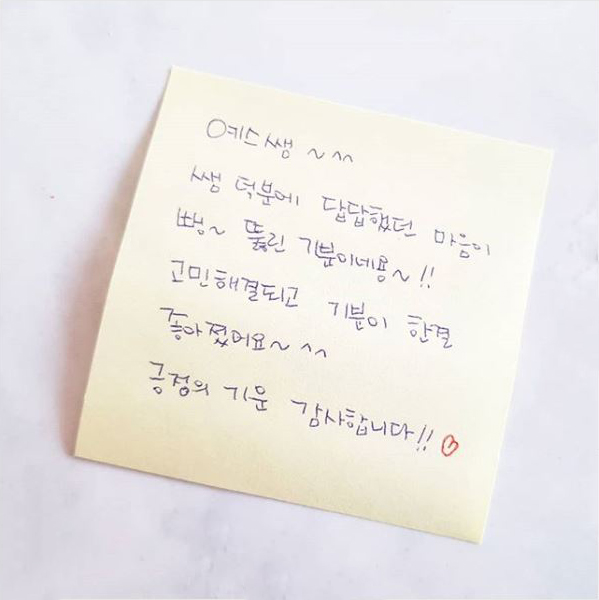 예스쌤 ~ ^^
쌤 덕분에 답답했던 마음이
뻥~ 뚫린 기분이네용~!!
고민해결되고 기분이 한결
좋아졌어요~ ^^
긍정의 기운 감사합니다!! ♡